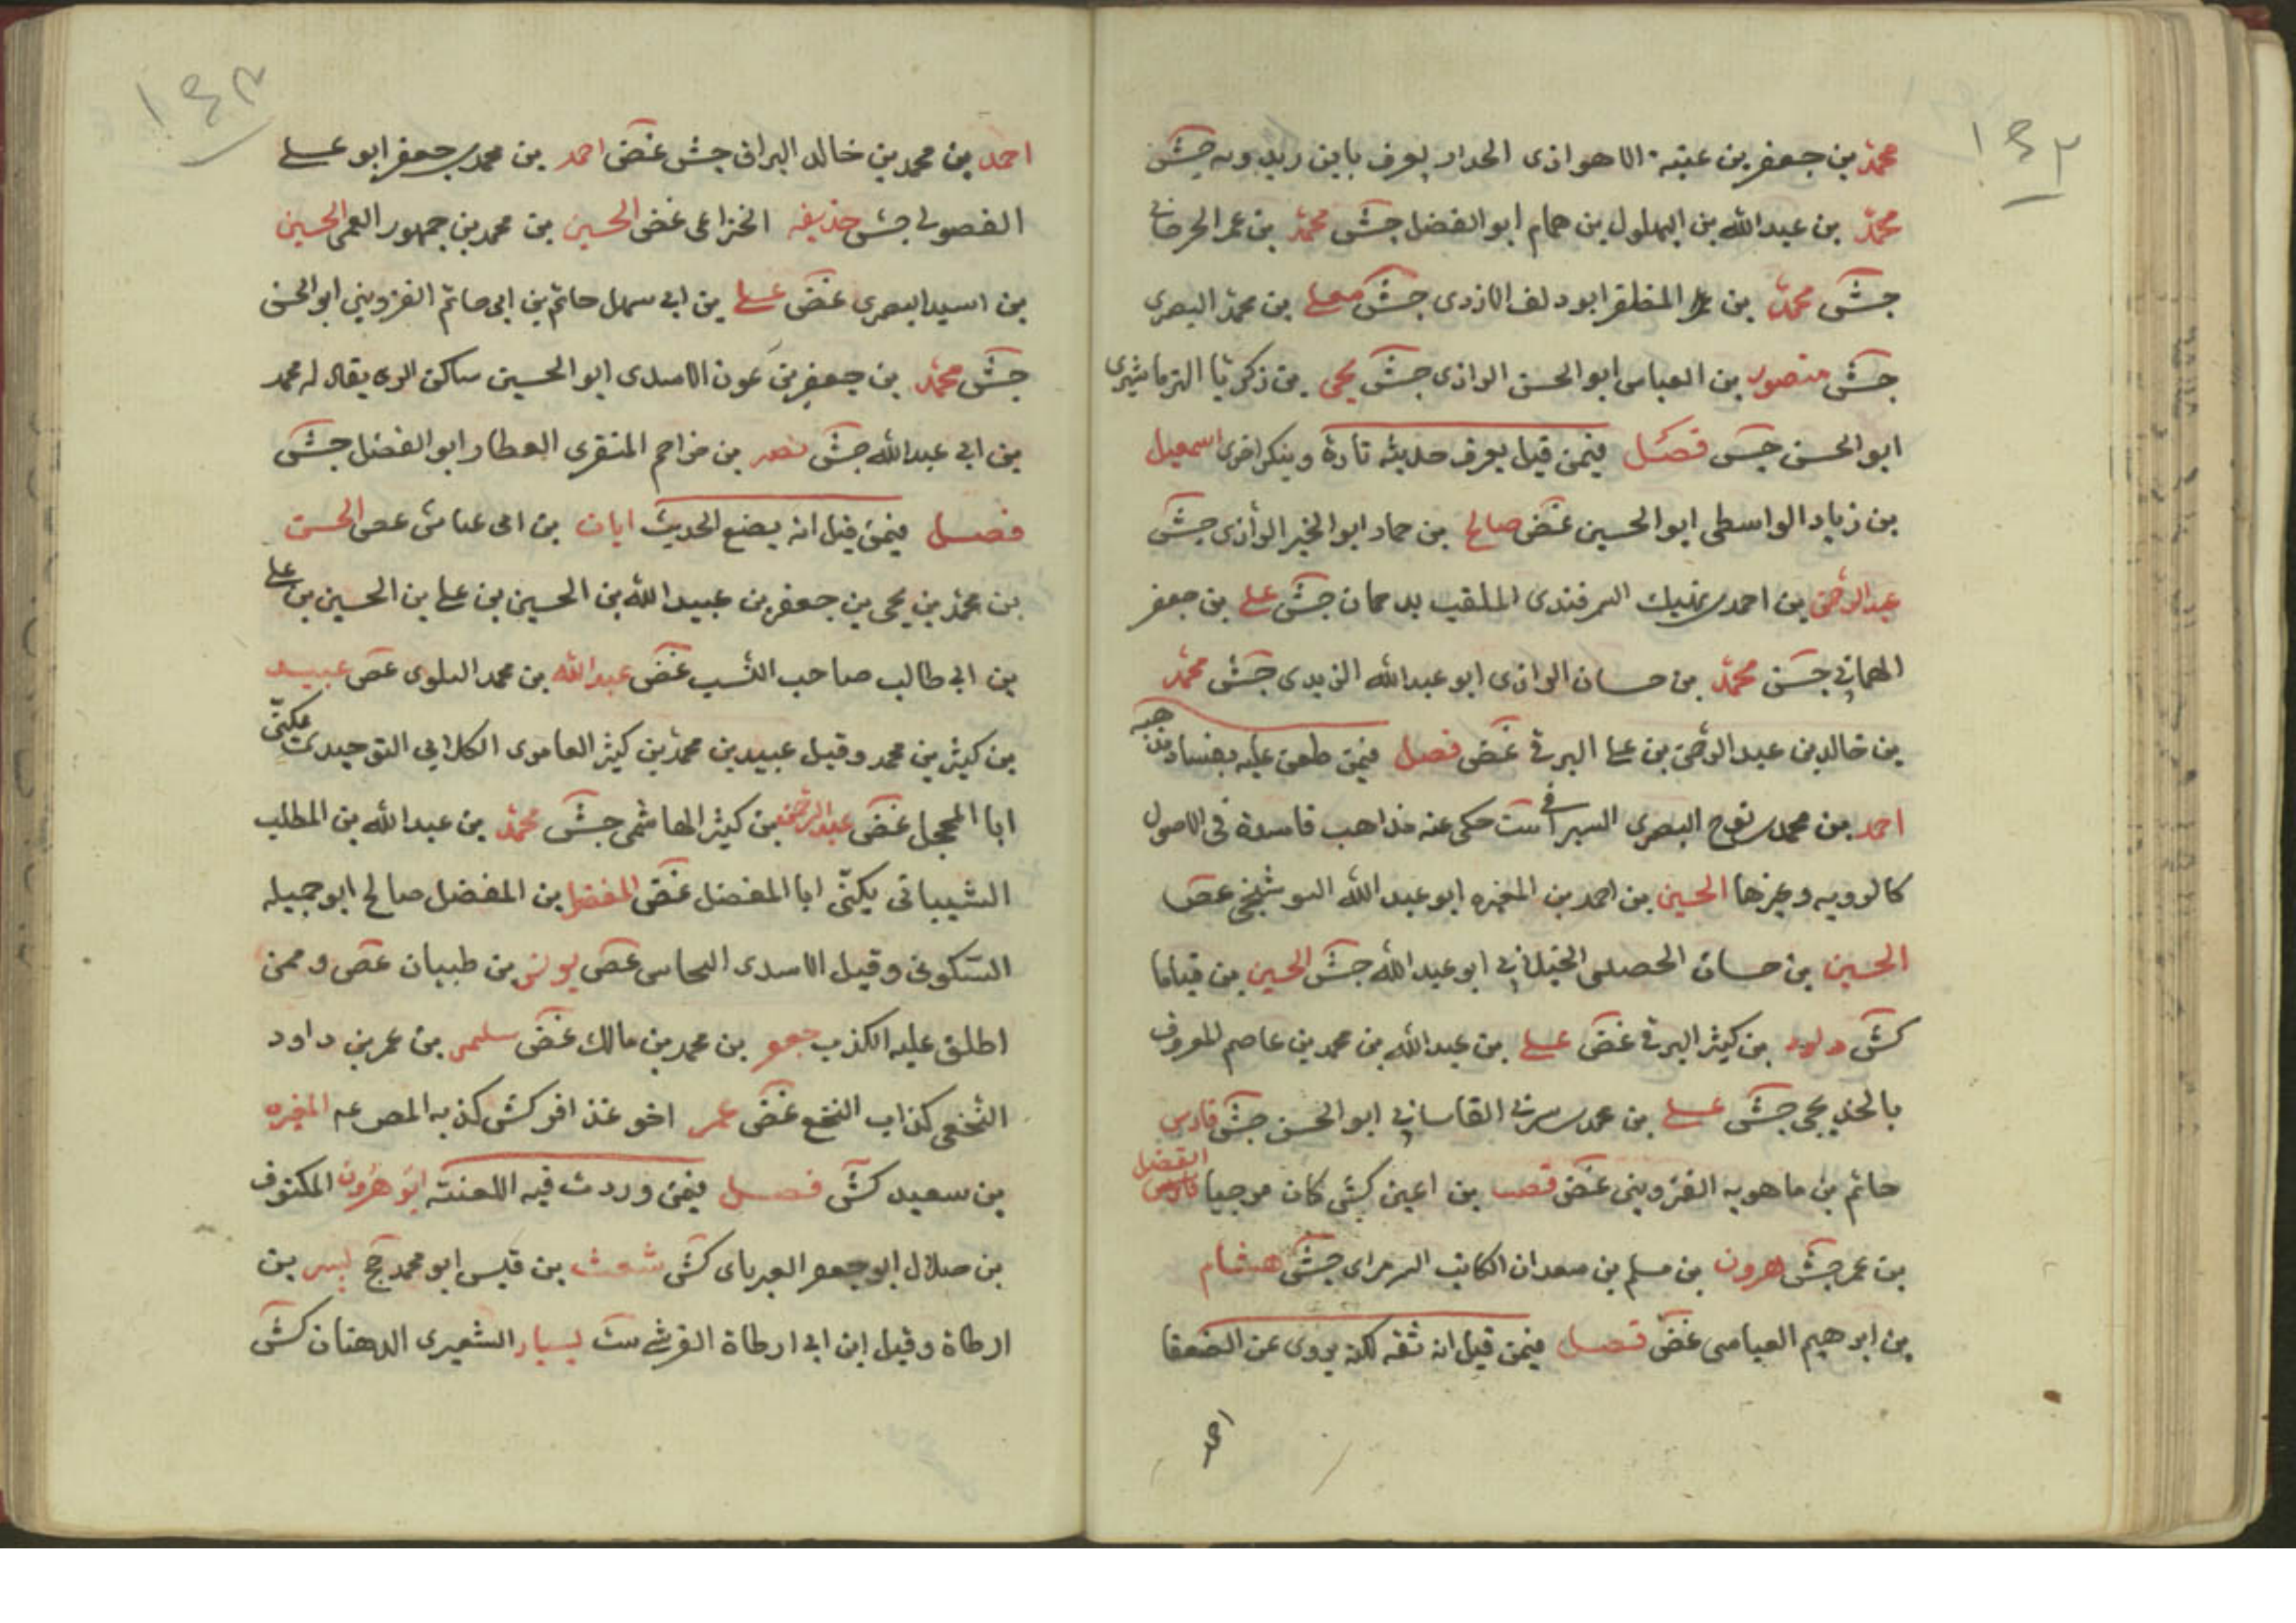 ١٤٢
محمد بن جعفر بن عنبه الاهوازى الحداد يعرف بابن ريدويه جش
محمد بن عبد الله بن البهلول بن همام ابو الفضل جش محمد بن عمر الجرجانى
جش محمد بن المظفر ابو دلف الازدى جش معلى بن محمد البصرى
جش منصور بن العباس ابو الحسن الرازى جش يحيى بن زكريا الترماشيرى
ابو الحسن جش فصل فيمن قيل يعرف حديثه تارة وينكر اخرى اسمعيل
بن زياد الواسطى ابو الحسين غض صالح بن حماد ابو الخير الرازى جش
عبد الرحمن بن احمد بن نهيك السمرقندى الملقب بدحمان جش على بن جعفر
الهمانى جش محمد بن حسان الرازى ابو عبد الله الزيدى جش محمد
بن خالد بن عبد الرحمن بن على البرقى غض فصل فيمن طعن عليه بفساد مذهبه
احمد بن محمد بن نوح البصرى السيرافى ست حكى عنه مذاهب فاسدة فى الاصول
كالرويه وغيرها الحسين بن احمد بن المغيره ابو عبد الله البوشنجى غض
الحسين بن حسان الحصينى الجنبلانى ابو عبد الله جش الحسين بن قياما
كش داود بن كثير البرقى غض على بن عبد الله بن محمد بن عاصم المعروف
بالخديجى جش على بن محمد بن شيره القاسانى ابو الحسن جش فارس
حاتم بن ماهويه القزوينى غض قعنب بن اعين كش كان مرجيا الفضل
بن عمر جش هرون بن مسلم بن سعدان الكاتب السرمراى جش هشام
بن ابرهيم العباسى غض فصل فيمن قيل انه ثقه لكنه يروى عن الضعفا
احمد
١٤٣
احمد بن محمد بن خالد البراقى جش غض احمد بن محمد بن جعفر ابو على
الصولى جش حذيفه الخزاعى غض الحسين بن محمد بن جمهور العمى الحسين
بن اسيد البصرى غض على بن ابى سهل حاتم بن ابى حاتم القزوينى ابو الحسن
جش محمد بن جعفر بن عون الاسدى ابو الحسين ساكن الرى يقال له محمد
بن ابى عبد الله جش نصر بن مزاحم المنقرى العطار ابو الفضل جش
فصل فيمن قيل انه يضع الحديث ابان بن ابى عياش غض الحسن
بن محمد بن يحيى بن جعفر بن عبيد الله بن الحسين بن على بن الحسين بن على
بن ابى طالب صاحب النسب غض عبد الله بن محمد البلوى غض عبيد
بن كثير بن محمد وقيل عبيد بن محمد بن كثير العامرى الكلابى التوحيدى يكنى
ابا المحجل غض عبد الرحمن بن كثير الهاشمى جش محمد بن عبد الله بن المطلب
الشيبانى يكنى ابا المفضل غض المفضل بن المفضل صالح ابو جميله
السكونى وقيل الاسدى النحاس غض يونس بن ظبيان غض وممن
اطلق عليه الكذب جعفر بن محمد بن مالك غض سليمن بن عمر بن داود
النخعى كذاب النخع غض عمر اخو عذافر كش كذبه المغيره
بن سعيد كش فصل فيمن وردت فيه اللعنة ابو هرون المكفوف
بن صلال ابو جعفر العبرتاى كش شعث بن قيس ابو محمد جخ بسر بن
ارطاة وقيل ابن ابى ارطاة القرشى ست بسيار الشعيرى الدهقان كش